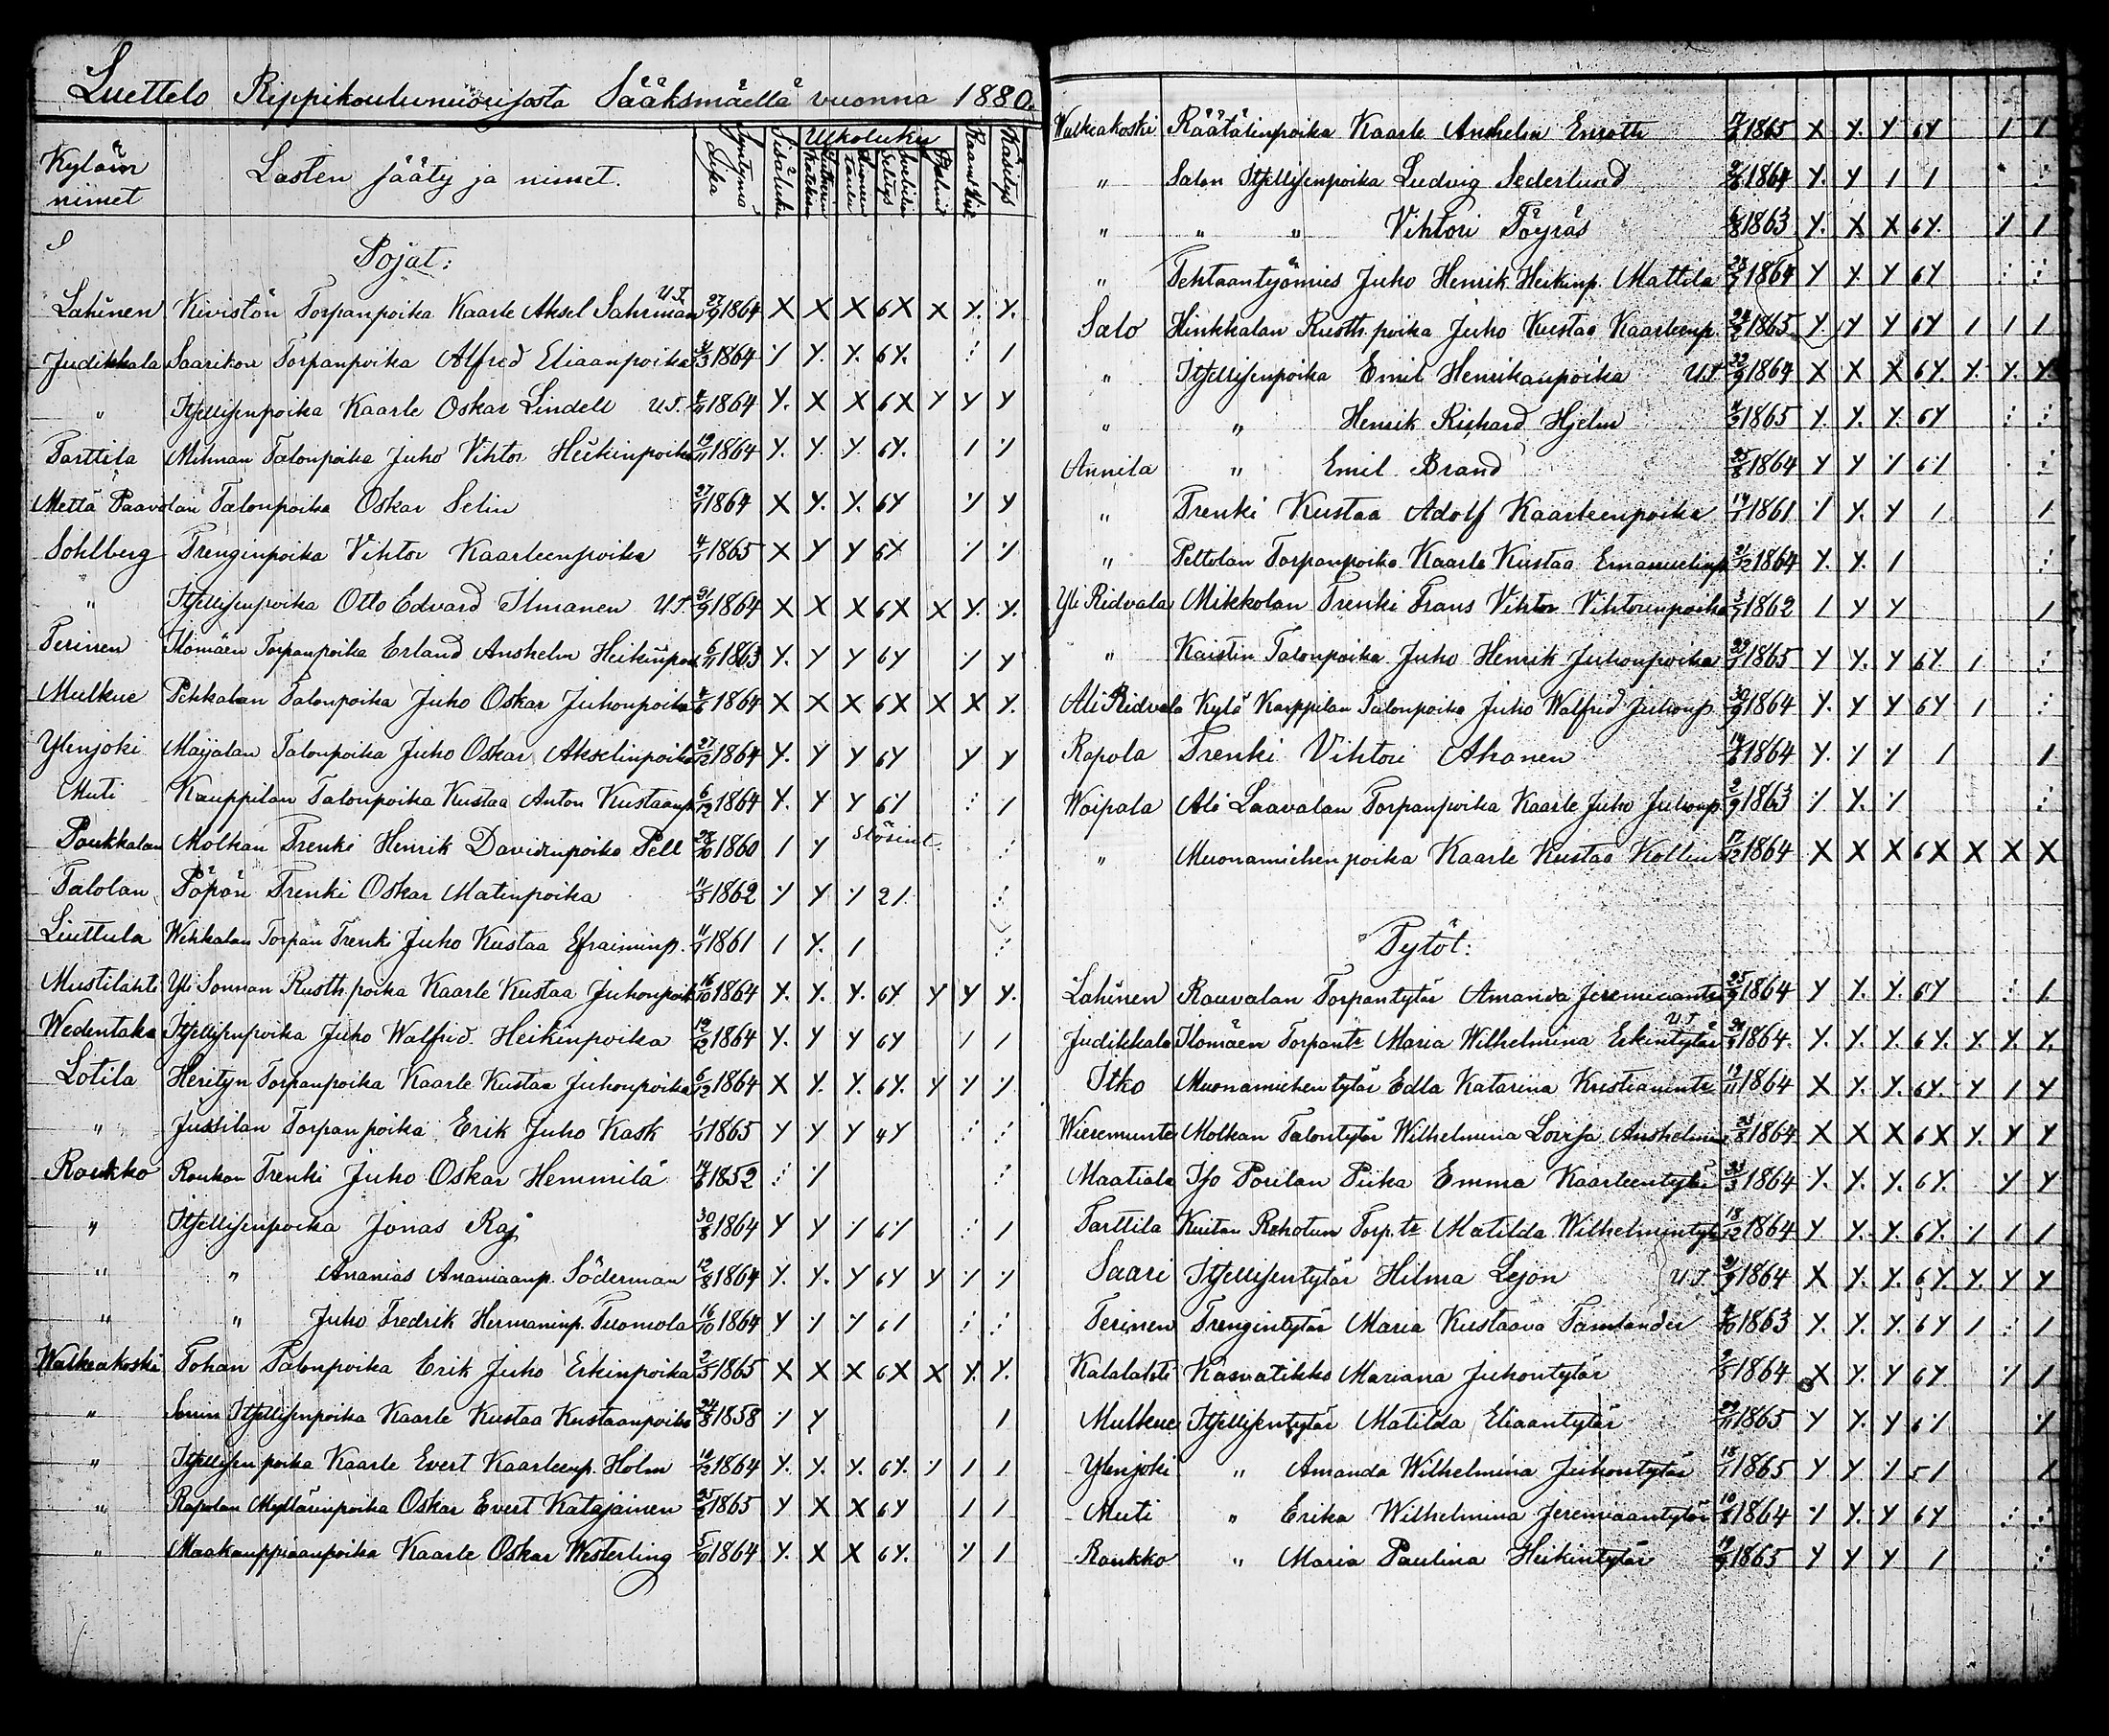 Luettelo Rippikoulunuorisosta Sääksmäellä vuonna 1880.
Kyläin nimet Lasten sääty ja nimet. Syntymä Aika Sisäluku Ulkoluku Psalmi Raam. Hist. Käsitys
Pojat:
Lahinen Kivistön Torpanpoika Kaarle Aksel Sahrman U.T. 27/9 1864 X X X 6X X Y. Y.
Judikkala Saarikon Torpanpoika Alfred Eliaanpoika 31/3 1864 ⁒ Y. Y. 6Y. : 1
" Itsellisenpoika Kaarle Oskar Lindell U.T. 1864 Y. X X 6X Y Y Y
Tarttila Mihnan Talonpoika Juho Vihtor Heikinpoika 19/11 1864 Y. Y. Y. 6Y. 1 ⁒
Mettä Paavolan Talonpoika Oskar Selin 1864 X Y. Y. 6Y ⁒ Y
Sohlberg Trenginpoika Vihtor Kaarleenpoika 1865 X Y Y 6Y ⁒ ⁒
" Itsellisenpoika Otto Edvard Ilmanen U.T. 1864 X X X 6X X Y. Y.
Terinen Ilomäen Torpanpoika Erland Anshelm Heikinpoi. 6/11 1863 Y. Y Y 6Y ⁒ Y
Mulkue Pekkalan Talonpoika Juho Oskar Juhonpoika 1864 X X X 6X X X Y.
Ylenjoki Maijalan Talonpoika Juho Oskar Akselinpoika 27/12 1864 Y. Y Y 6Y Y Y
Muti Kauppilan Talonpoika Kustaa Anton Kustaanp. 6/12 1864 Y. Y Y 6⁒ : 1
Paukkalan Molkan Trenki Henrik Davidinpoika Pell 28/10 1860 1 Y :
Talolan Pöpön Trenki Oskar Matinpoika 11/3 1862 ⁒ Y ⁒ 2 1. :
Liuttula Wehkalan Torpan Trenki Juho Kustaa Efraiminp. 1861 1 Y. 1 :
Mustilahti Yli Sonnan Rusth.poika Kaarle Kustaa Juhonpoik 16/10 1864 Y. Y. Y. 6Y Y Y Y.
Wedentaka Itsellisenpoika Juho Walfrid Heikinpoika 19/12 1864 Y. Y Y 6Y 1 1
Lotila Herityn Torpanpoika Kaarle Kustaa Juhonpoika 6/12 1864 X Y. Y. 6Y. Y ⁒ ⁒
" Jussilan Torpanpoika Erik Juho Kask 1865 Y Y Y 4Y : :
Roukko Roukon Trenki Juho Oskar Hemmilä 1852 : ⁒ :
" Itsellisenpoika Jonas Raj 30/8 1864 Y Y ⁒ 6⁒ : 1
" " Ananias Ananiaanp. Söderman 12/8 1864 Y. Y. Y 6Y Y ⁒ ⁒
" " Juho Fredrik Hermaninp. Tuomola 16/10 1864 Y ⁒ ⁒ 6 1 : :
Walkeakoski Tohan Talonpoika Erik Juho Erkinpoika 2/3 1865 X X X 6X X Y. Y.
" Itsellisenpoika Kaarle Kustaa Kustaanpoika 24/8 1858 ⁒ Y 1
" Itsellisenpoika Kaarle Evert Kaarleenp. Holm 1864 Y. Y. Y. 6Y. ⁒ 1 1
" Rapolan Myllärinpoika Oskar Evert Katajainen 1865 Y X X 6Y 1 1
" Maakauppiaanpoika Kaarle Oskar Westerling 5/10 1864 Y. X X 6Y. ⁒ 1
Walkeakoski Räätälinpoika Kaarle Anshelm Enroth 1865 X Y. Y 6Y 1 1
" Salon Itsellisenpoika Ludvig Sederlund 1864 Y. Y 1 1 :
" " " Vihtori Töyräs 6/8 1863 Y. X X 6Y. ⁒ 1
" Tehtaantyömies Juho Henrik Heikinp. Mattila 1864 Y Y Y 6Y : :
Salo Hinkkalan Rusth.poika Juho Kustaa Kaarleenp. 1865 Y. Y Y 6Y 1 1 1
" Itsellisenpoika Emil Henrikanpoika U.T. 22/9 1864 X X X 6Y. Y. Y. Y.
" " Henrik Rishard Hjelm 1865 Y. Y. Y. 6Y : :
Annila " Emil Brand 25/8 1864 Y Y ⁒ 6⁒ :
" Trenki Kustaa Adolf Kaarleenpoika 1861 ⁒ Y. Y 1 1
" Peltolan Torpanpoika Kaarle Kustaa Emanuelinp. 21/12 1864 Y. Y. 1 :
Yli Ridvala Mikkolan Trenki Frans Vihtor Vihtorinpoika 1862 1 Y Y 1
" Kaistin Talonpoika Juho Henrik Juhonpoika 1865 Y Y. Y 6Y. 1 :
Ali Ridvala Kylä Karppilan Talonpoika Juho Walfrid Juhonp. 30/9 1864 Y. Y Y 6Y 1 :
Rapola Trenki Vihtori Ahonen 1864 Y. ⁒ ⁒ 1 1
Woipala Ali Laavalan Torpanpoika Kaarle Juho Juhonp. 2/9 1863 ⁒ Y. ⁒ :
" Muonamiehenpoika Kaarle Kustaa Kollin 17/12 1864 X X X 6X X X X
Tytöt:
Lahinen Rauvalan Torpantytär Amanda Jeremiaantr 25/9 1864 Y Y. Y. 6Y : 1.
Judikkala Ilomäen Torpantr Maria Wilhelmina Erkintytär U.T. 1864. Y. Y. Y. 6Y. Y. Y. Y.
Itko Muonamiehentytär Edla Katarina Kristianintr 19/11 1864 X Y. Y. 6Y. Y 1 Y
Wieremunte Molkan Talontytär Wilhelmina Lovisa Anshelmin 1864 X X X 6X Y. Y Y
Maatiala Iso Porilan Piika Emma Kaarleentytär 1864 Y. Y. Y. 6Y. Y Y
Tarttila Kuitan Rohotun Torp.tr Matilda Wilhelmintytr 18/12 1864 Y. Y. Y. 6Y. ⁒ 1 1
Saari Itsellisentytär Hilma Lejon U.T. 1864 X Y. Y. 6Y. Y. Y Y
Terinen Trengintytär Maria Kustaava Tamlander 1863 Y. Y. Y. 6Y 1 : 1
Kalalahti Kasvatikko Mariana Juhontytär 1864 X Y. Y 6Y ⁒ 1
Mulkue Itsellisentytär Matilda Eliaantytär 1865 Y Y. Y 6⁒ ⁒
Ylenjoki " Amanda Wilhelmina Juhontytär 1865 Y Y ⁒ 5 1 1
Muti " Erika Wilhelmina Jeremiaantytär 1864 ⁒ Y. Y 6Y : :
Roukko " Maria Paulina Heikintytär 1865 Y Y Y 1 :